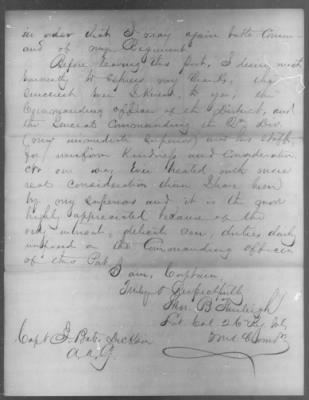 in order that I may again take Com-
mand of my Regiment
Before leaving this post, I deem most
earnestly to express my thanks, the
sincerest ever to you, the
Commanding Officer of the District, and
the General Commanding the Div
(my immediate superior) and his staff,
for uniform Kindness and Consideration
no one was Ever treated with more
real consideration than I have been
by my superiors and it is the more
highly appreciated because of the
very delicate duties daily
on the Commanding officer
of this Post.
I am, Captain,
Truly & Respectfully
Thos. B
Lt. Col. 26 Ky Vols
Comdr
Capt J. Bates Dickson
A.A.G.